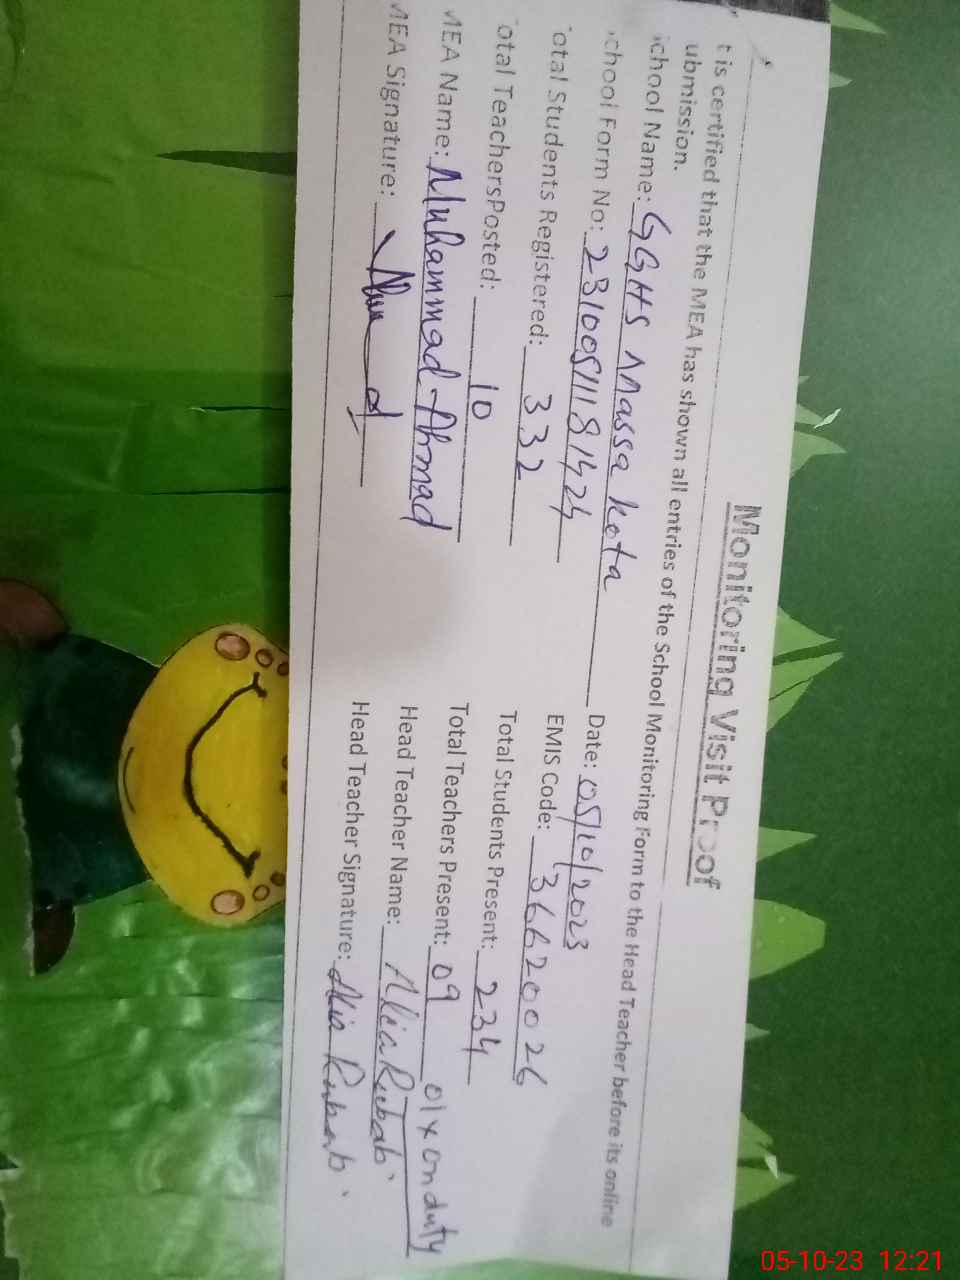 Monitoring Visit Proof
t is certified that the MEA has shown all entries of the School Monitoring Form to the Head Teacher before its online
ubmission.
chool Name: GGHS Massa kota Date: 05/10/2023
chool Form No: 23100511181424 EMIS Code: 36620026
otal Students Registered: 332 Total Students Present: 234
otal TeachersPosted: 10 Total Teachers Present: 09 01 x on duty
MEA Name: Muhammad Ahmad Head Teacher Name: Alia Rubab
MEA Signature: Head Teacher Signature: Alia Rubab
05-10-23 12:21